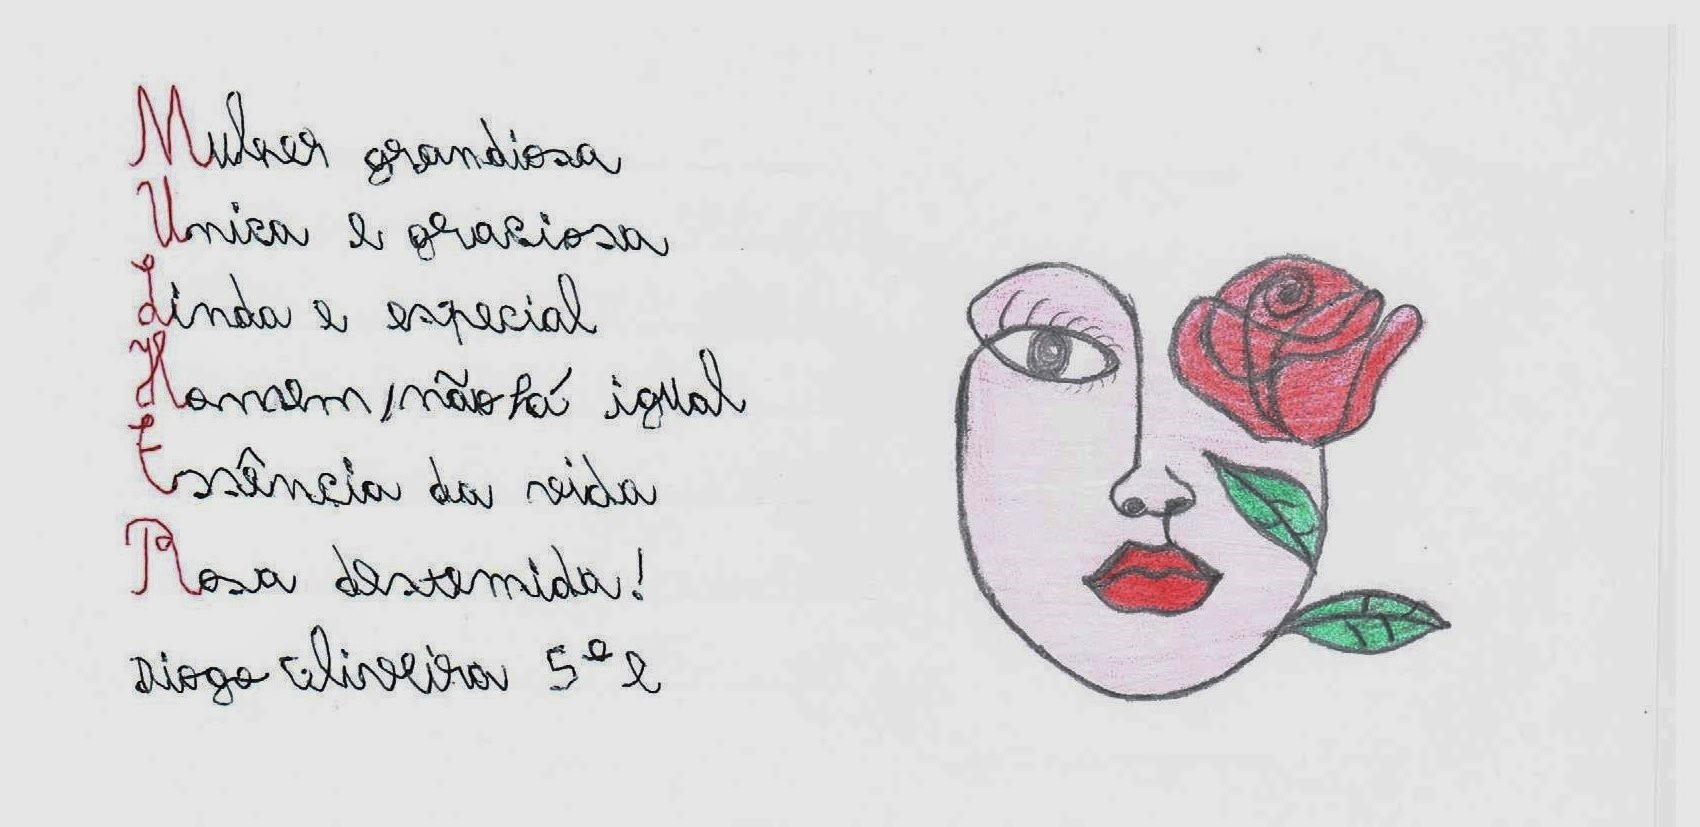 Mulher grandiosa
Unica e graciosa
Linda e especial
Homem, não há igual
Essência da vida
Rosa destemida!
Diogo Oliveira 5º e